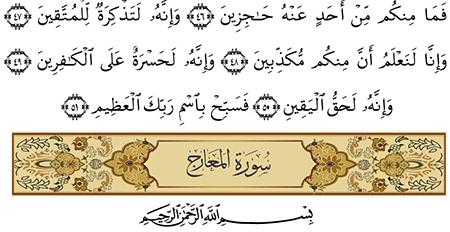 فَمَا مِنكُم مِّنْ أَحَدٍ عَنْهُ حَـٰجِزِينَ ﴿٤٧﴾ وَإِنَّهُۥ لَتَذْكِرَةٌ لِّلْمُتَّقِينَ ﴿٤٨﴾
وَإِنَّا لَنَعْلَمُ أَنَّ مِنكُم مُّكَذِّبِينَ ﴿٤٩﴾ وَإِنَّهُۥ لَحَسْرَةٌ عَلَى ٱلْكَـٰفِرِينَ ﴿٥٠﴾
وَإِنَّهُۥ لَحَقُّ ٱلْيَقِينِ ﴿٥١﴾ فَسَبِّحْ بِٱسْمِ رَبِّكَ ٱلْعَظِيمِ ﴿٥٢﴾
سُورَةُ المَعَارِجِ
بِسْمِ اللَّهِ الرَّحْمَٰنِ الرَّحِيمِ